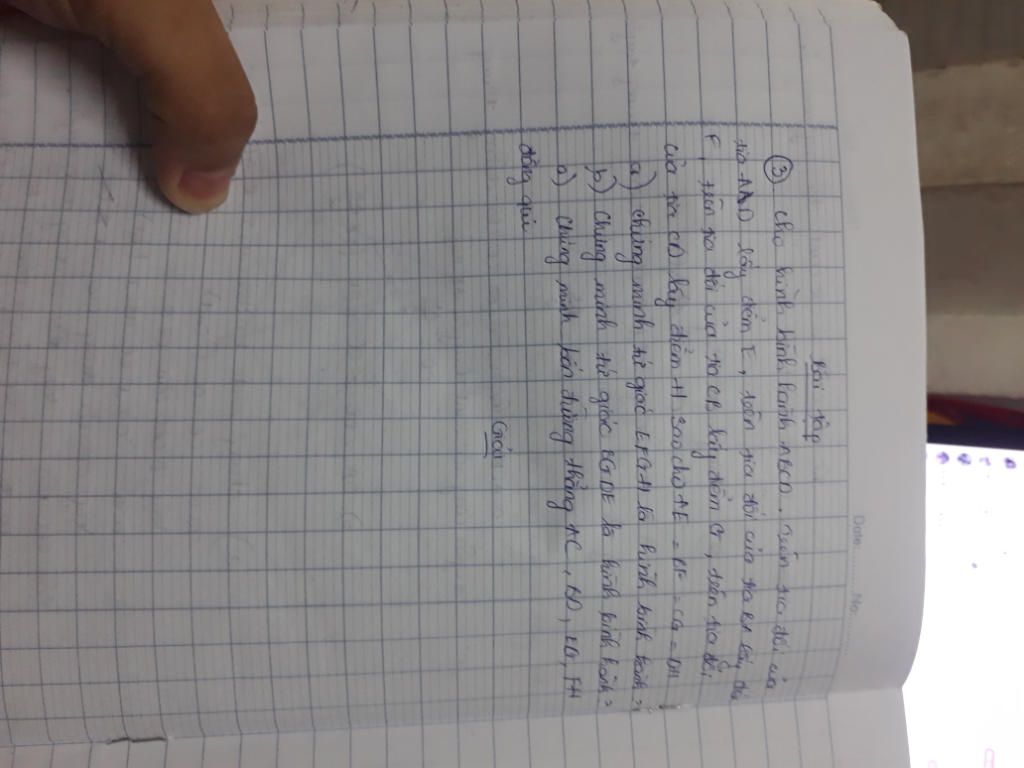 Date: No:
Bài tập
③ cho hình bình hành ABCD. trên tia đối của
tia AD lấy điểm E, trên tia đối của tia BA lấy
F, trên tia đối của tia CB lấy điểm G, trên tia đối
của tia CD lấy điểm H sao cho AE = BF = CG = DH
a) chứng minh tứ giác EFGH là hình bình hành
b) Chứng minh tứ giác BGDE là hình bình hành
a) Chứng minh bốn đường thẳng AC, BD, EG, FH
đồng qui
Giải